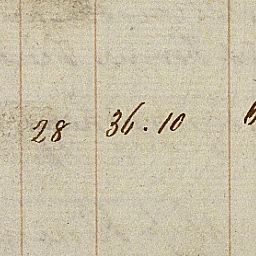 28 36.10